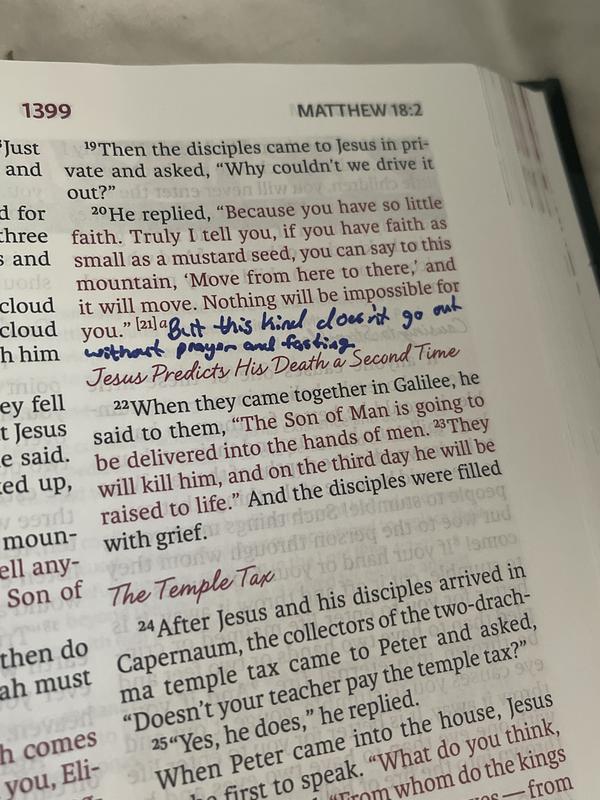 1399 MATTHEW 18:2
Just
and
d for
three
s and
cloud
cloud
h him
ey fell
t Jesus
e said.
ked up,
moun-
ell any-
Son of
then do
ah must
h comes
you, Eli-
19Then the disciples came to Jesus in pri-
vate and asked, “Why couldn’t we drive it
out?”
20He replied, “Because you have so little
faith. Truly I tell you, if you have faith as
small as a mustard seed, you can say to this
mountain, ‘Move from here to there,’ and
it will move. Nothing will be impossible for
you.” [21] a But this kind doesn't go out
without prayer and fasting
Jesus Predicts His Death a Second Time
22When they came together in Galilee, he
said to them, “The Son of Man is going to
be delivered into the hands of men. 23They
will kill him, and on the third day he will be
raised to life.” And the disciples were filled
with grief.
The Temple Tax
24After Jesus and his disciples arrived in
Capernaum, the collectors of the two-drach-
ma temple tax came to Peter and asked,
“Doesn’t your teacher pay the temple tax?”
25“Yes, he does,” he replied.
When Peter came into the house, Jesus
first to speak. “What do you think,
“From whom do the kings
—from